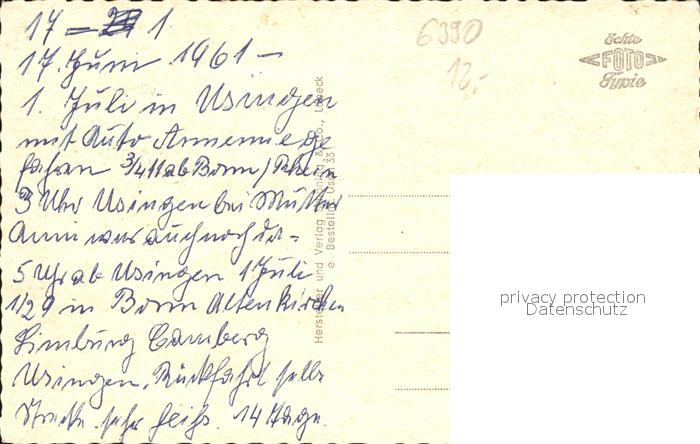 17 – 1
17. Juni 1961 –
1. Juli in Usingen
mit Auto Annemie ge
fahren 3/4 11 ab Bonn / Rhein
3 Uhr Usingen bei Mutter
Anni war auch noch da –
5 Uhr ab Usingen 1 Juli
1/2 9 in Bonn Altenkirchen
Limburg Camberg
Usingen. Rückfahrt selbe
Strecke. sehr heiß. 14 Tage.
6390
12,-
Echte
FOTO
Typie
Hersteller und Verlag Schöning & Co., Lübeck
privacy protection
Datenschutz